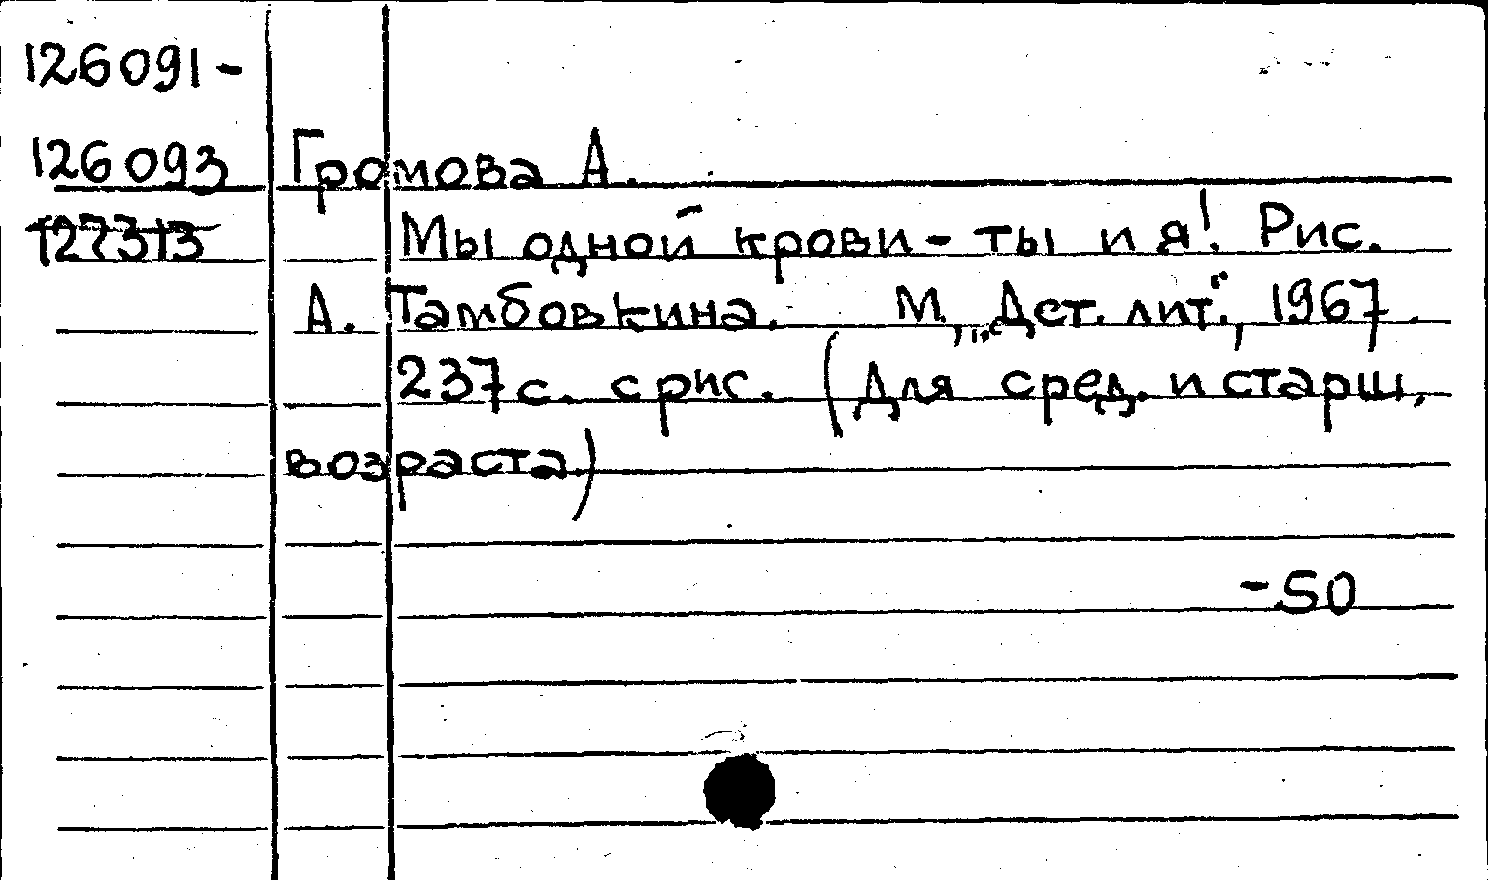 126091-
126093 Громова А.
127313 Мы одной крови - ты и я! Рис.
А. Тамбовкина. М., „Дет. лит.", 1967.
237 с. с рис. (Для сред. и старш.
возраста.)
-50